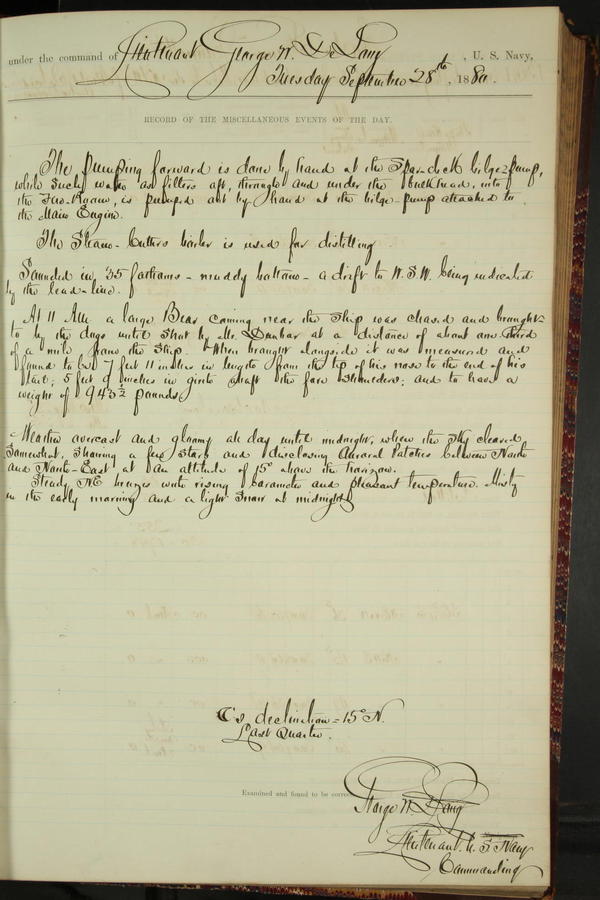 under the command of Lieutenant George W. De Long, U. S. Navy,
Tuesday September 28th, 1880.
RECORD OF THE MISCELLANEOUS EVENTS OF THE DAY.
The pumping forward is done by hand at the Spar-deck bilge-pump,
while such water as filters aft, through and under the bulkhead, into
the Fire-Room, is pumped out by hand at the bilge-pump attached to
the Main Engine.
The Steam-Cutters boiler is used for distilling.
Sounded in, 35 fathoms - muddy bottom - a drift to W.S.W. being indicated
by the lead-line.
At 11 AM a large Bear coming near the ship was chased and brought
to by the dogs until shot by Mr. Dunbar at a distance of about one third
of a mile from the Ship. When brought alongside it was measured and
found to be 7 feet 11 inches in length from the tip of his nose to the end of his
tail; 5 feet 9 inches in girth abaft the fore shoulders; and to have a
weight of 943½ pounds
Weather overcast and gloomy all day until midnight, when the sky cleared
somewhat, showing a few stars and disclosing Auroral patches between North
and North-East at an altitude of 15° above the horizon.
Steady NE breezes with rising barometer and pleasant temperature. Misty
in the early morning and a light snow at midnight
☾'s declination = 15° N.
Last Quarter.
Examined and found to be correct
George W. De Long
Lieutenant U. S. Navy
Commanding